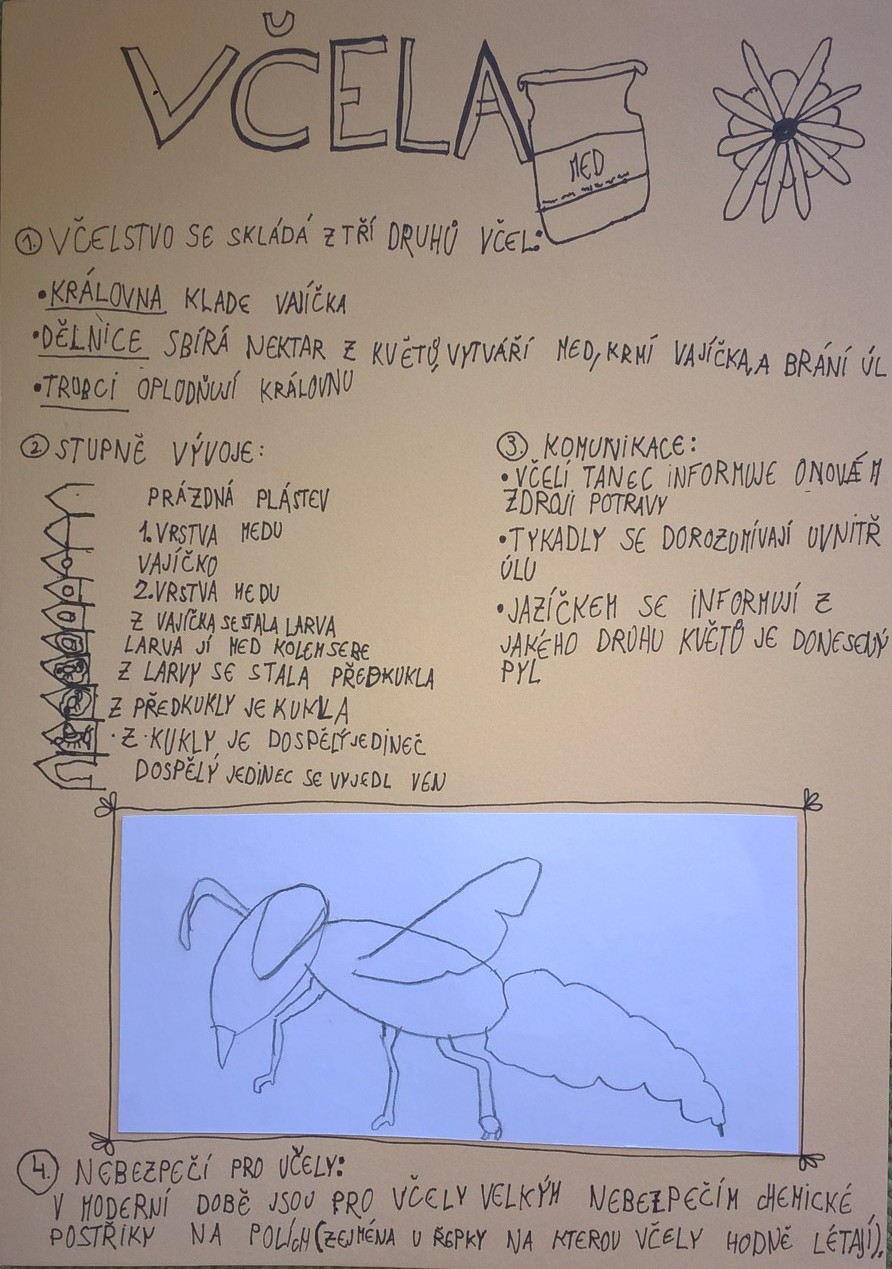 VČELA
MED
1. VČELSTVO SE SKLÁDÁ Z TŘÍ DRUHŮ VČEL:
•KRÁLOVNA KLADE VAJÍČKA
•DĚLNICE SBÍRÁ NEKTAR Z KVĚTŮ, VYTVÁŘÍ MED, KRMÍ VAJÍČKA, A BRÁNÍ ÚL
•TRUBCI OPLODŇUJÍ KRÁLOVNU
2. STUPNĚ VÝVOJE:
PRÁZDNÁ PLÁSTEV
1. VRSTVA MEDU
VAJÍČKO
2. VRSTVA MEDU
Z VAJÍČKA SE STALA LARVA
LARVA JÍ MED KOLEM SEBE
Z LARVY SE STALA PŘEDKUKLA
Z PŘEDKUKLY JE KUKLA
Z KUKLY JE DOSPĚLÝ JEDINEČ
DOSPĚLÝ JEDINEC SE VYJEDL VEN
3. KOMUNIKACE:
•VČELÍ TANEC INFORMUJE O NOVÉM
ZDROJI POTRAVY
•TYKADLY SE DOROZUMÍVAJÍ UVNITŘ
ÚLU
•JAZÍČKEM SE INFORMUJÍ Z
JAKÉHO DRUHU KVĚTŮ JE DONESENÝ
PYL
4. NEBEZPEČÍ PRO VČELY:
V MODERNÍ DOBĚ JSOU PRO VČELY VELKÝM NEBEZPEČÍM CHEMICKÉ
POSTŘIKY NA POLÍCH (ZEJMÉNA U ŘEPKY NA KTEROU VČELY HODNĚ LÉTAJÍ).